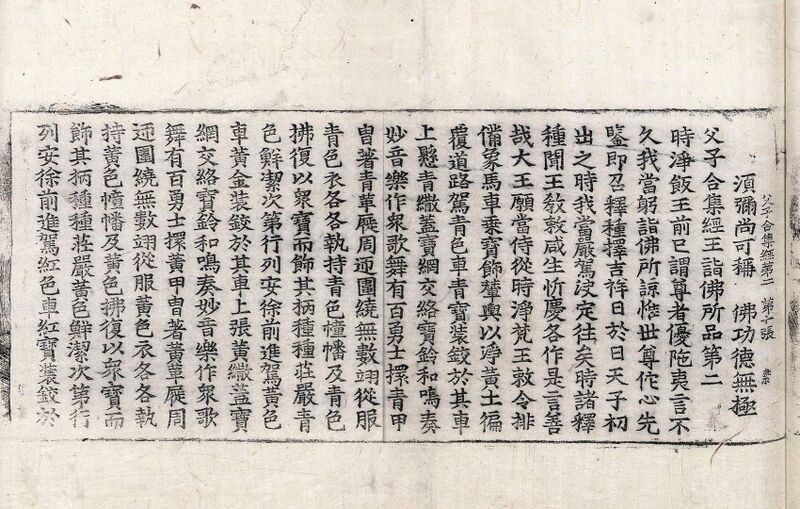 父子合集經第二　第二張　祟
須彌尚可稱　佛功德無極
父子合集經王詣佛所品第二
時淨飯王前已謂尊者優陁夷言不
久我當躬詣佛所諒惟世尊佗心先
鑒即召釋種擇吉祥日於日天子初
出之時我當嚴駕決定往矣時諸釋
種聞王敎敕咸生忻慶各作是言善
哉大王願當侍從時淨梵王敕令排
備象馬車乘寶飾輦輿以淨黃土徧
覆道路駕青色車青寶裝鉸於其車
上懸青繖蓋寶網交絡寶鈴和鳴奏
妙音樂作衆歌舞有百勇士擐青甲
冑著青華屣周迊圍繞無數翊從服
青色衣各各執持青色幢幡及青色
拂復以衆寶而飾其柄種種莊嚴青
色鮮潔次第行列安徐前進駕黃色
車黃金裝鉸於其車上張黃繖蓋寶
網交絡寶鈴和鳴奏妙音樂作衆歌
舞有百勇士擐黃甲冑著黃華屣周
迊圍繞無數翊從服黃色衣各各執
持黃色幢幡及黃色拂復以衆寶而
飾其柄種種莊嚴黃色鮮潔次第行
列安徐前進駕紅色車紅寶裝鉸於